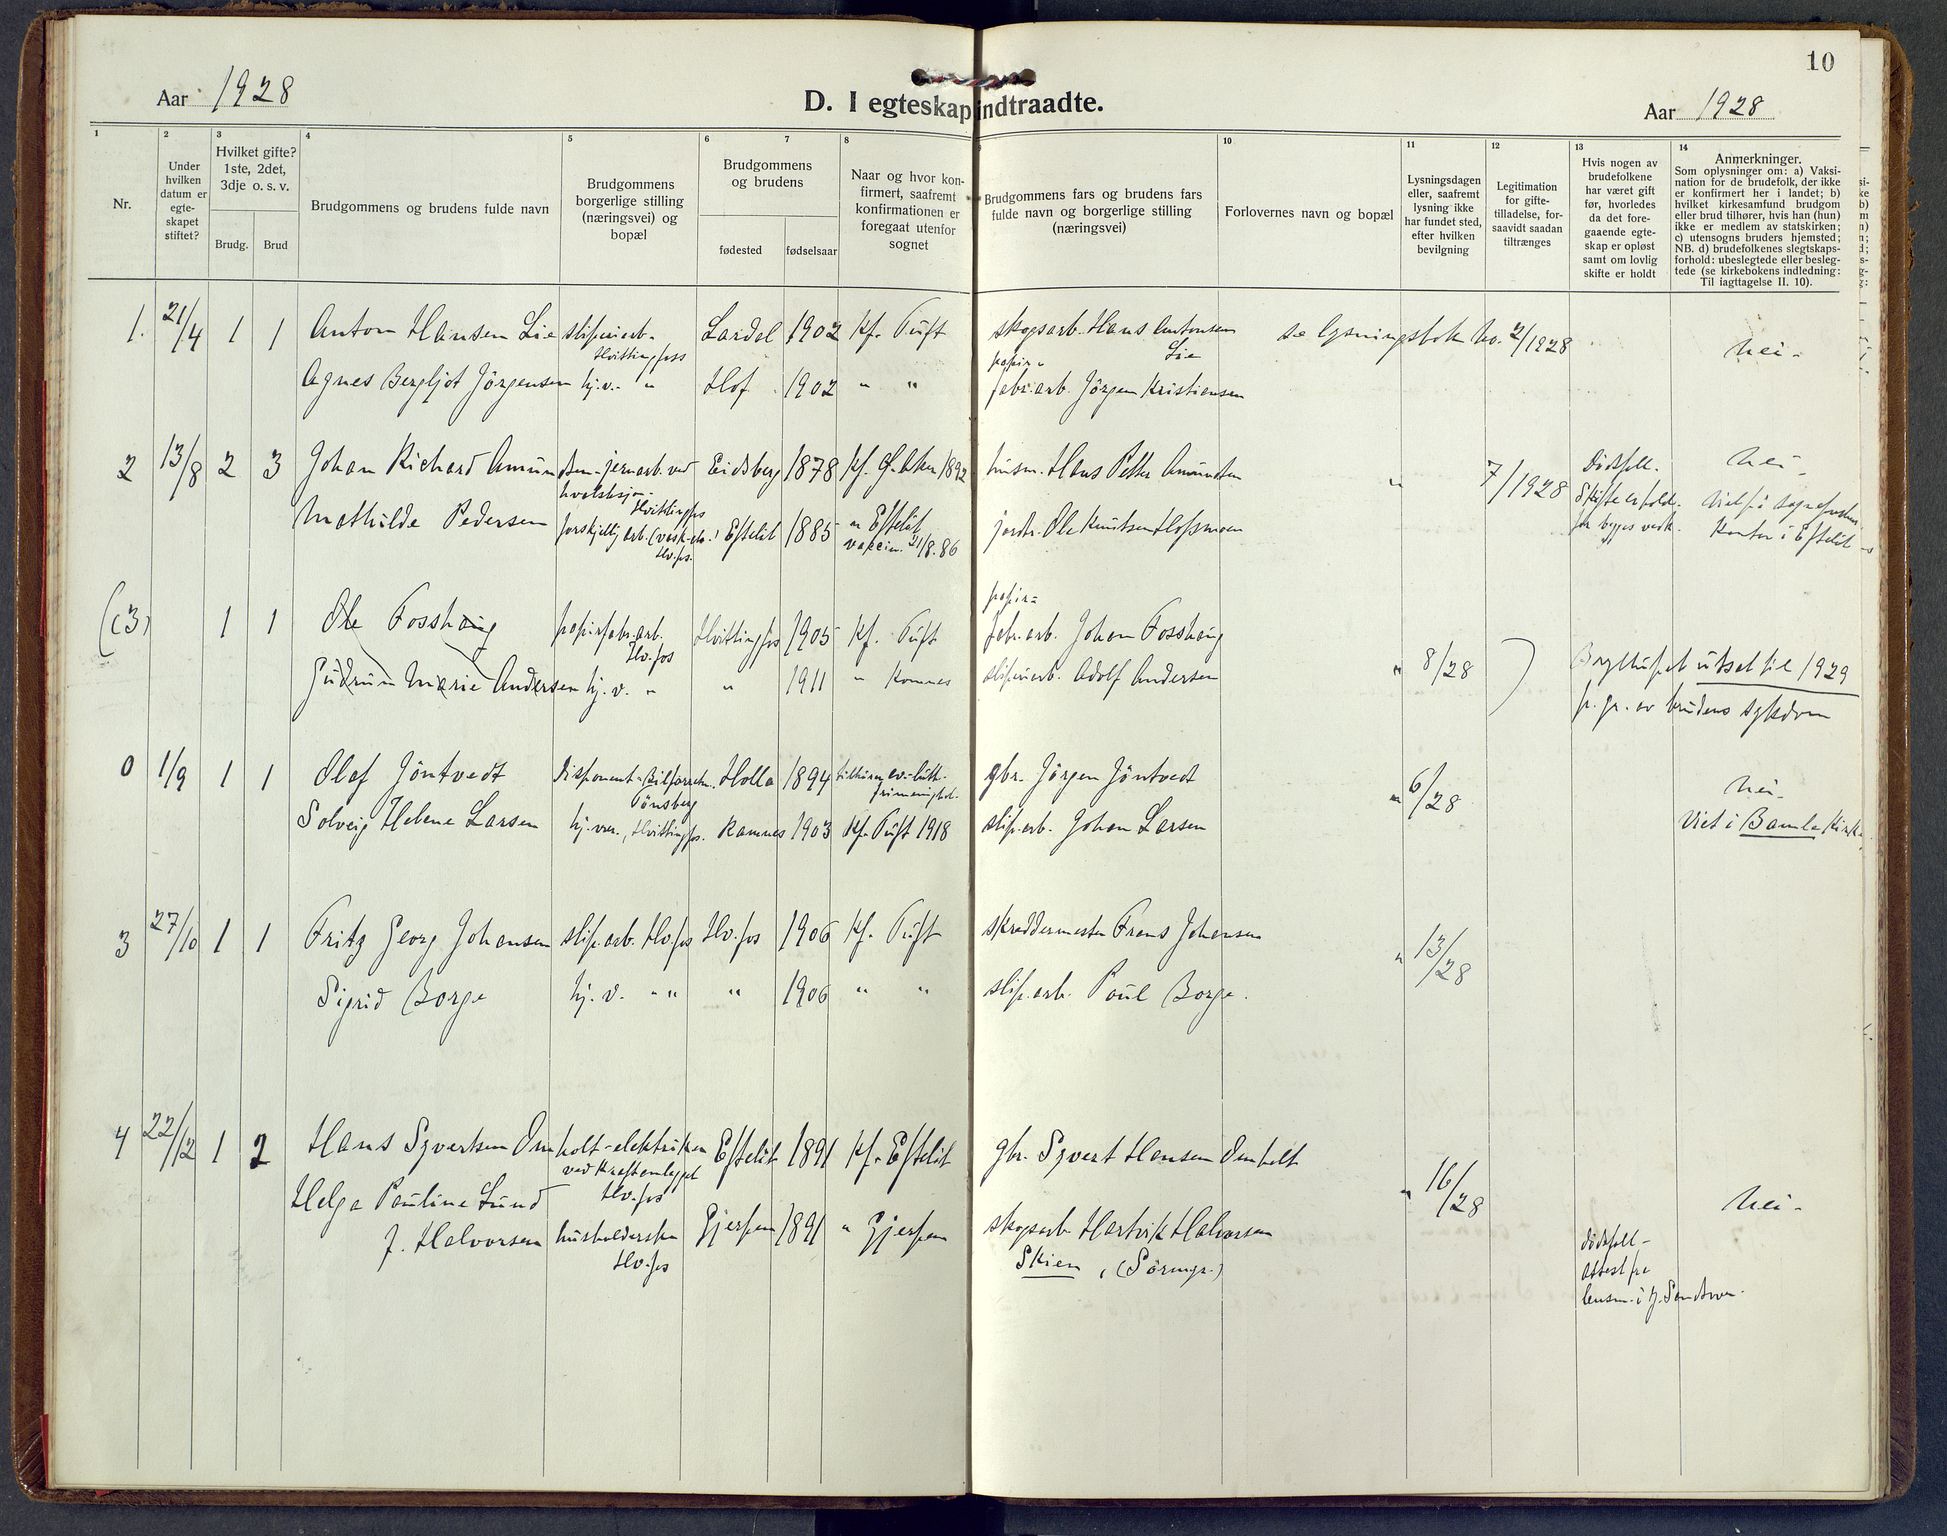 10
Aar 1928
D. I egteskap indtraadte.
Aar 1928
1
2
3
4
5
6
7
8
10
11
12
13
14
Nr.
Under hvilken datum er egte-skapet stiftet?
Hvilket gifte? 1ste, 2det, 3dje o. s. v.
Brudg.
Brud
Brudgommens og brudens fulde navn
Brudgommens borgerlige stilling (næringsvei) og bopæl
Brudgommens og brudens
fødested
fødselsaar
Naar og hvor kon-firmert, saafremt konfirmationen er foregaat utenfor sognet
Brudgommens fars og brudens fars fulde navn og borgerlige stilling (næringsvei)
Forlovernes navn og bopæl
Lysningsdagen eller, saafremt lysning ikke har fundet sted, efter hvilken bevilgning
Legitimation for gifte-tilladelse, for-saavidt saadan tiltrænges
Hvis nogen av brudefolkene har været gift før, hvorledes da det fore-gaaende egte-skap er opløst samt om lovlig skifte er holdt
Anmerkninger.
Som oplysninger om: a) Vaksi-nation for de brudefolk, der ikke er konfirmert her i landet; b) hvilket kirkesamfund brudgom eller brud tilhører, hvis han (hun) ikke er medlem av statskirken; c) utensogns bruders hjemsted; NB. d) brudefolkenes slegtskaps-forhold: ubeslegtede eller besleg-tede (se kirkebokens indledning: Til iagttagelse II. 10).
1. 21/4 1 1 Anton Hansen Lie sliperiarb. Hvittingfoss Lardal 1902 Kf. Tuft skogsarb. Hans Antonsen Lie se lysningsbok No. 2/1928 Nei.
Agnes Bergljot Jörgensen hj.v. " Hof 1902 " " papir-fabr.arb. Jörgen Kristiensen
2 13/8 2 3 Johan Richard Amundsen - jernarb. ved Hvittingfos Eidsberg 1878 Kf. G. Aker 1892 husm. Hans Petter Amundsen " 7/1928 Dødsfall. Nei.
Mathilde Pedersen forskjellig arb. (vask etc.) Hv.fos. Efteløt 1885 " Efteløt vaccin. 21/8.86 jordbr. Ole Knutsen Hofsmoen Kontor i Efteløt
(3) 1 1 Ole Fosshaug papirfabr.arb. Hv.fos Hvittingfos 1905 Kf. Tuft papir-fabr.arb. Johan Fosshaug
Gudrun Marie Andersen hj.v. " " 1911 " Komnes sliperiarb. Adolf Andersen " 8/28 Bryllupet utsat til 1929
p. gr. av brudens sykdom
0 1/9 1 1 Olaf Jöntvedt disponent - Bilforretn. Tönsberg Holla 1894 tilhører ev.-luth. frimenighet. gbr. Jörgen Jöntvedt " 6/28 Nei.
Solveig Helene Larsen hj.vær., Hvittingfos. Ramnes 1903 Kf. Tuft 1918 slip.arb. Johan Larsen Viet i Bamle Kirke
3 27/10 1 1 Fritz Georg Johansen slip.arb. Hv.fos Hv.fos 1906 Kf. Tuft skreddermester Frans Johansen " 13/28
Sigrid Borge hj.v. " " " 1906 " " slip.arb. Paul Borge.
4 22/12 1 2 Hans Syvertsen Omholt - elektriker ved Kraftanlegget Hv.fos Efteløt 1891 Kf. Efteløt gbr. Syvert Hansen Omholt " 16/28 Nei.
Helga Pauline Lund
f. Halvorsen husholderske Hv.fos Gjerpen 1891 " Gjerpen skogsarb. Hartvik Halvorsen
Skien, dødsfall -
attest fra
lensm. i